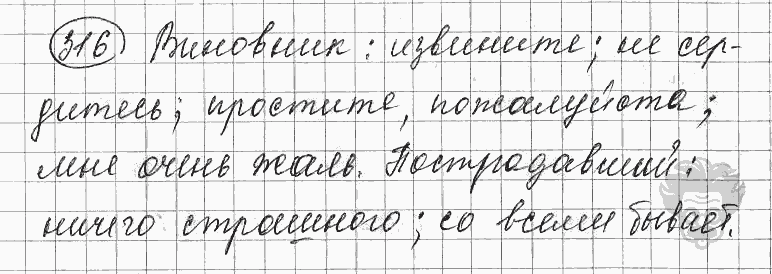 316 Виновник: извините; не сер-
дитесь; простите, пожалуйста;
мне очень жаль. Пострадавший:
ничего страшного; со всеми бывает.